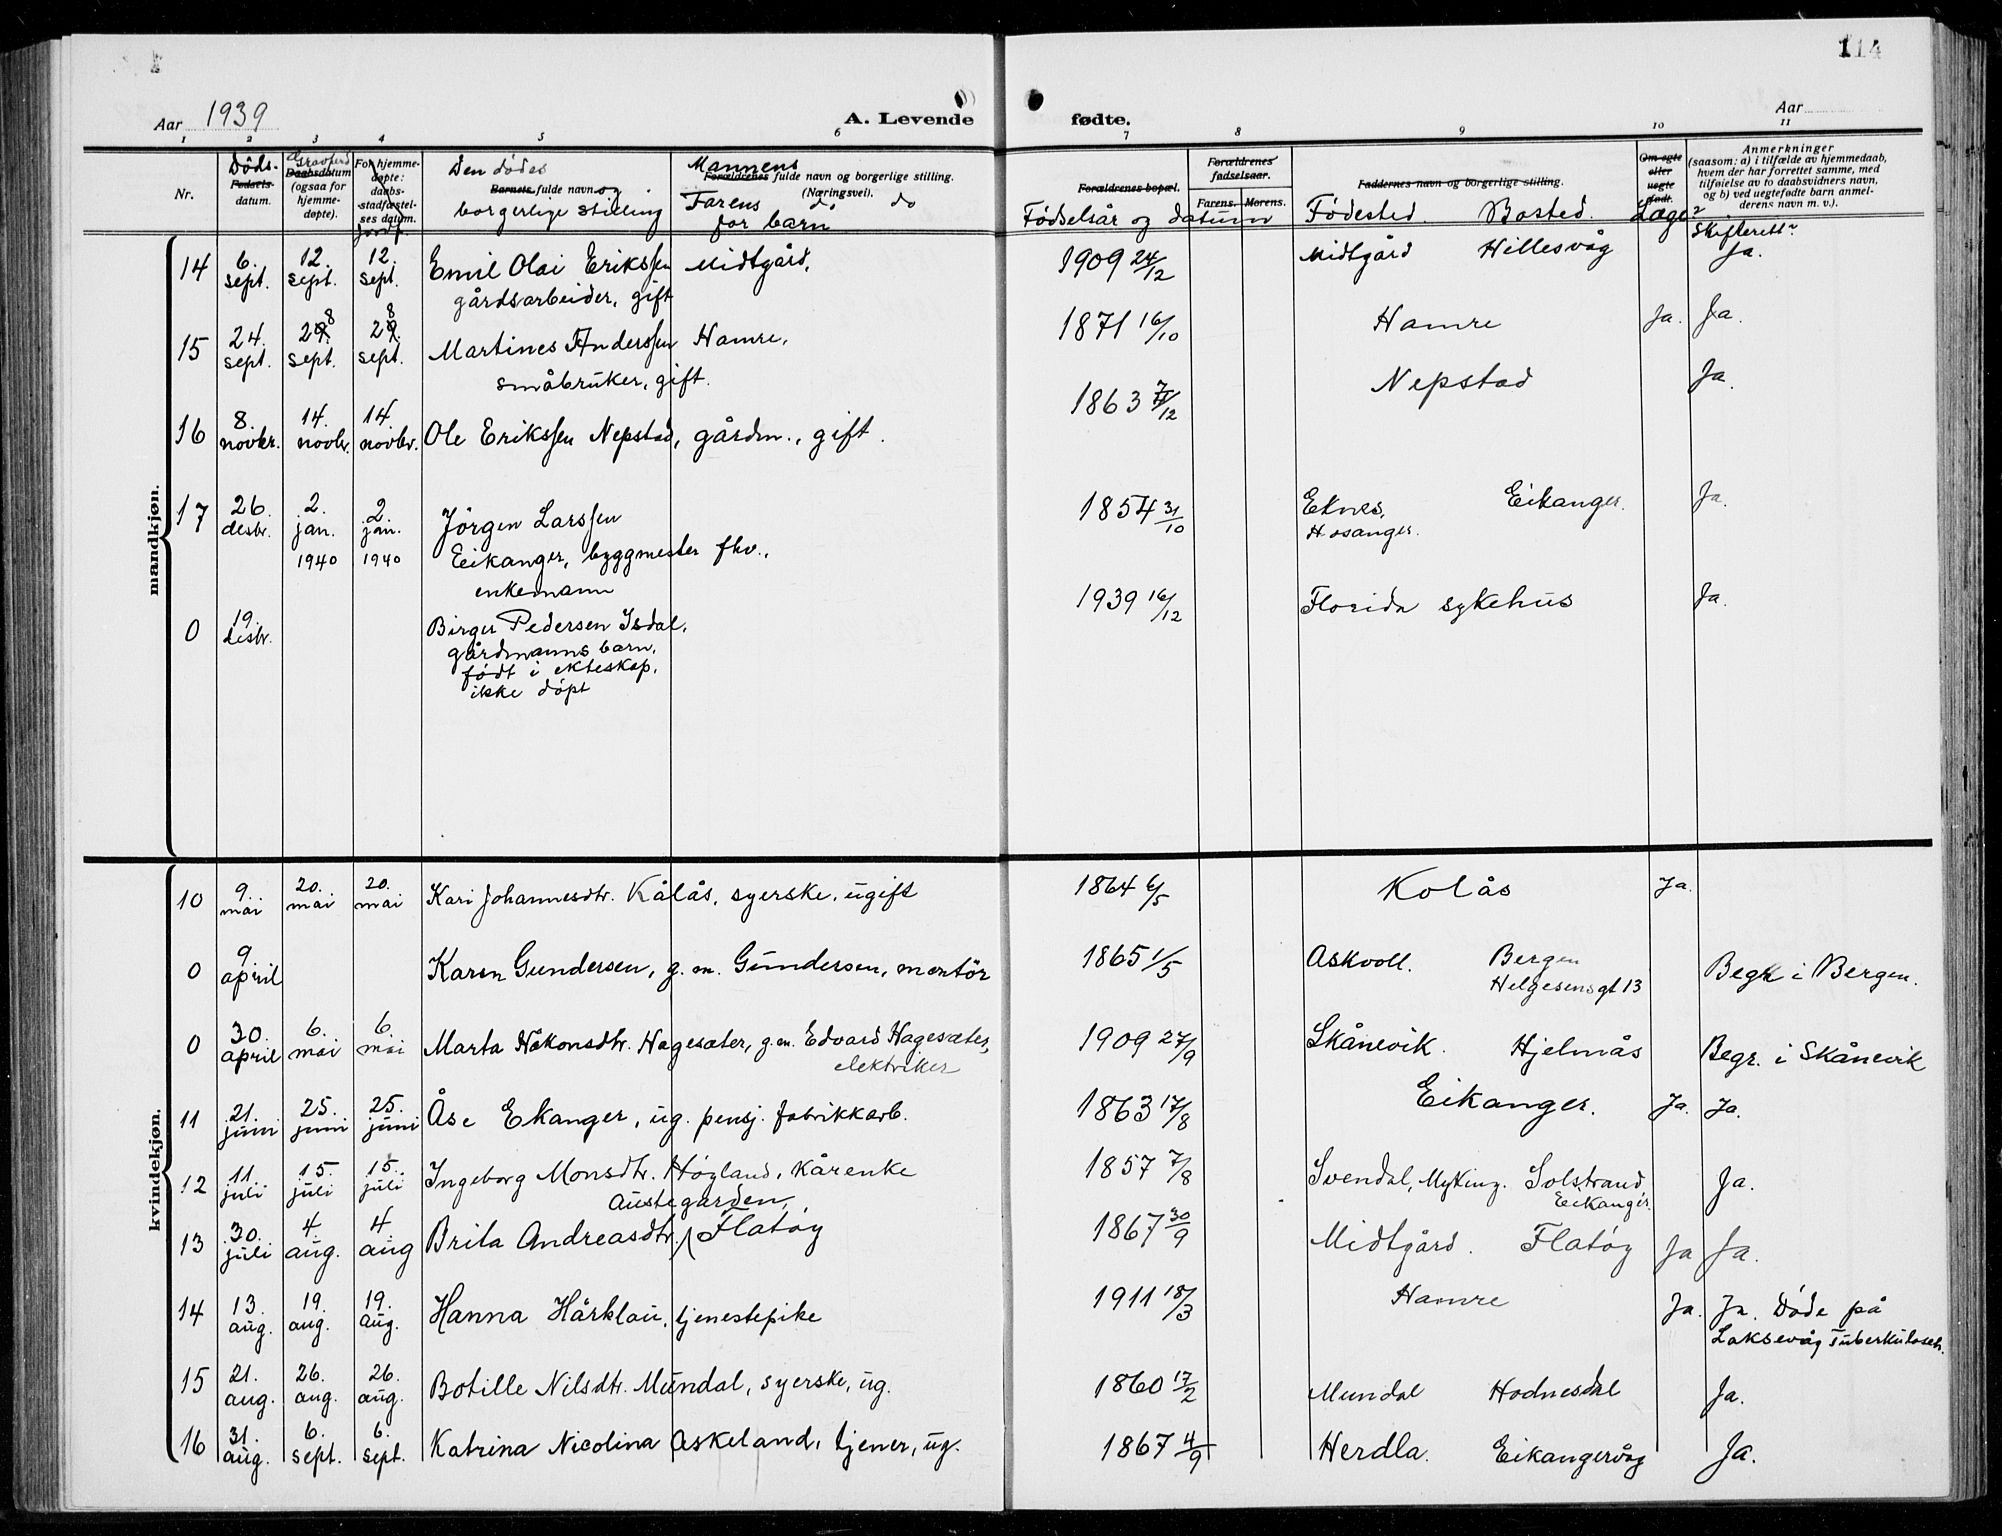 114
Aar 1939
A. Levende fødte.
Aar
1 2 3 4 5 6 7 8 9 10 11
Nr.
Döds-
Fødsels-
datum.
Gravferd
Daabsdatum
(ogsaa for
hjemme-
døpte).
For hjemme-
døpte:
daabs-
stadfæstel-
ses datum.
Jordf.
Den dödes
Barnets fulde navn og
borgerlige stilling
Mannens
Forældrenes fulde navn og borgerlige stilling.
(Næringsvei).
Farens do do
for barn
Forældrenes bopæl.
Födselsår og datum
Forældrenes
fødselsaar.
Farens. Morens.
Faddernes navn og borgerlige stilling.
Födested. Bosted.
Om egte
eller
uegte
født.
Læge?
Anmerkninger
(saasom: a) i tilfælde av hjemmedaab,
hvem der har forrettet samme, med
tilføielse av to daabsvidners navn,
og b) ved uegtefødte barn anmel-
derens navn m. v.).
Skifterett?
mandkjøn.
14 6. sept. 12. sept. 12. sept. Emil Olai Erikssen Midtgård, 1909 24/12 Midtgård Hillesvåg Ja.
gårdsarbeider, gift
15 24. sept. 28. sept. 28. sept. Martines Anderssen Hamre, 1871 16/10 Hamre Ja. Ja.
småbruker, gift.
16 8. novbr. 14. novbr. 14. novbr. Ole Erikssen Nepstad, gårdm., gift. 1863 7/12 Nepstad Ja.
17 26. desbr. 2. jan. 1940 2. jan. 1940 Jörgen Larssen 1854 31/10 Eknes, Hosanger. Eikanger. Ja.
Eikanger, byggmester fhv.,
enkemann
0 19. desbr. Birger Pedersen Isdal, 1939 16/12 Florida sykehus Ja.
gårdmanns barn,
födt i ekteskap,
ikke döpt
kvindekjøn.
10 9. mai 20. mai 20. mai Kari Johannesdtr. Kålås, syerske, ugift 1864 6/5 Kolås Ja.
0 9. april Karen Gundersen, g.m. Gundersen, montör 1865 1/5 Askvoll. Bergen Helgesensgt 13 Begr. i Bergen.
0 30. april 6. mai 6. mai Marta Håkonsdtr. Hagesæter, g.m. Edvard Hagesæter, 1909 27/9 Skånevik. Hjelmås Begr. i Skånevik
elektriker
11 21. juni 25. juni 25. juni Åse Ekanger, ug. pensj. fabrikkarb. 1863 17/8 Eikanger. Ja. Ja.
12 11. juli 15. juli 15. juli Ingeborg Monsdtr. Högland, kårenke 1857 7/8 Svendal, Myking. Solstrand Eikanger. Ja.
Austegarden,
13 30. juli 4. aug. 4. aug Brita Andreasdtr. Flatöy 1867 30/9 Midtgård. Flatöy Ja Ja.
14 13. aug. 19. aug. 19. aug. Hanna Hårklau, tjenestepike 1911 18/3 Hamre Ja. Ja. Döde på
Laksevåg Tuberkuloseh.
15 21. aug. 26. aug. 26. aug. Botille Nilsdtr. Mundal, syerske, ug. 1860 17/2 Mundal Hodnesdal Ja.
16 31. aug. 6. sept. 6. sept. Katrina Nicolina Askeland, tjener, ug. 1867 4/9 Herdla. Eikangervåg Ja.